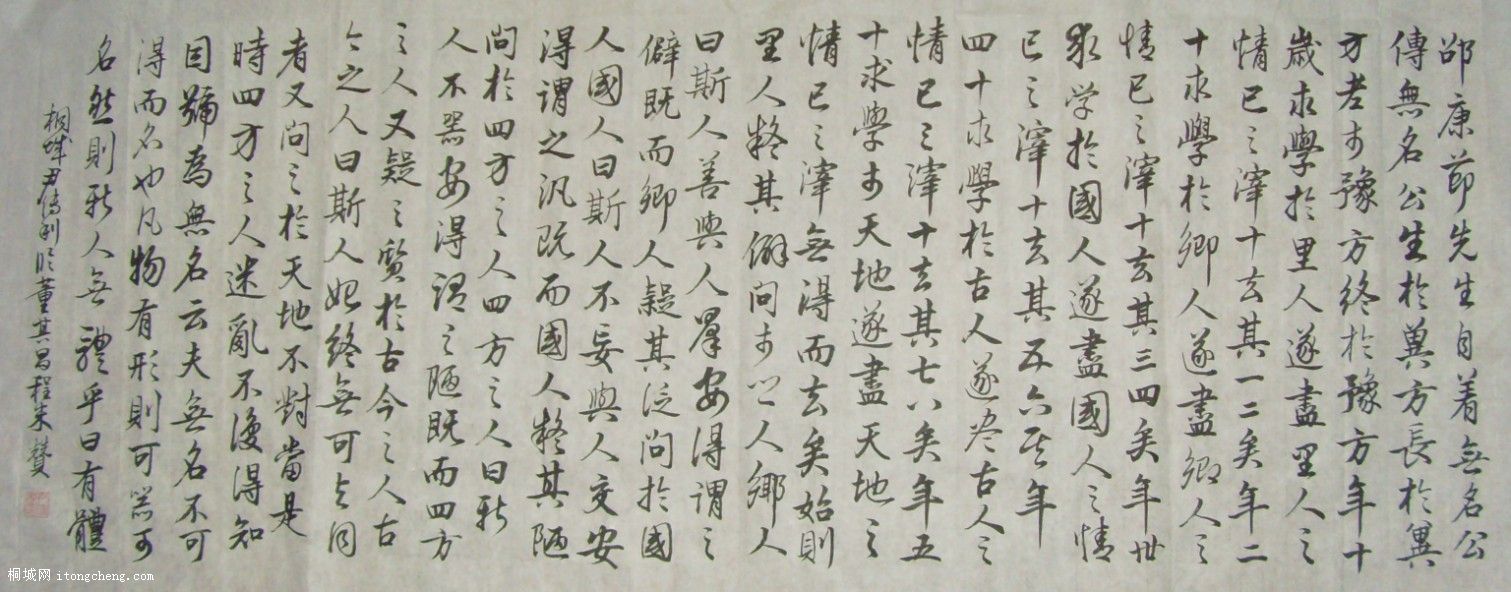 邵康節先生自着無名公
傳無名公生於冀方長於冀
方老於豫方終於豫方年十
歲求學於里人遂盡里人之
情己之滓十去其一二矣年二
十求學於鄉人遂盡鄉人之
情已之滓十去其三四矣年卅
求学於國人遂盡國人之情
已之滓十去其五六矣年
四十求學於古人遂尽古人之
情已之滓十去其七八矣年五
十求學於天地遂盡天地之
情已之滓無得而去矣始則
里人疑其僻問於人鄉人
曰斯人善與人羣安得謂之
僻既而鄉人疑其泛問於國
人國人曰斯人不妄與人交安
得謂之汎既而國人疑其陋
問於四方之人四方之人曰斯
人不器安得謂之陋既而四方
之人又疑之質於古今之人古
今之人曰斯人始終無可与同
者又問之於天地不對當是
時四方之人迷亂不復得知
因號為無名云夫無名不可
得而名也凡物有形則可器可
名然則斯人無體乎曰有體
桐城尹傳利临董其昌程朱贊
桐城网 itongcheng.com